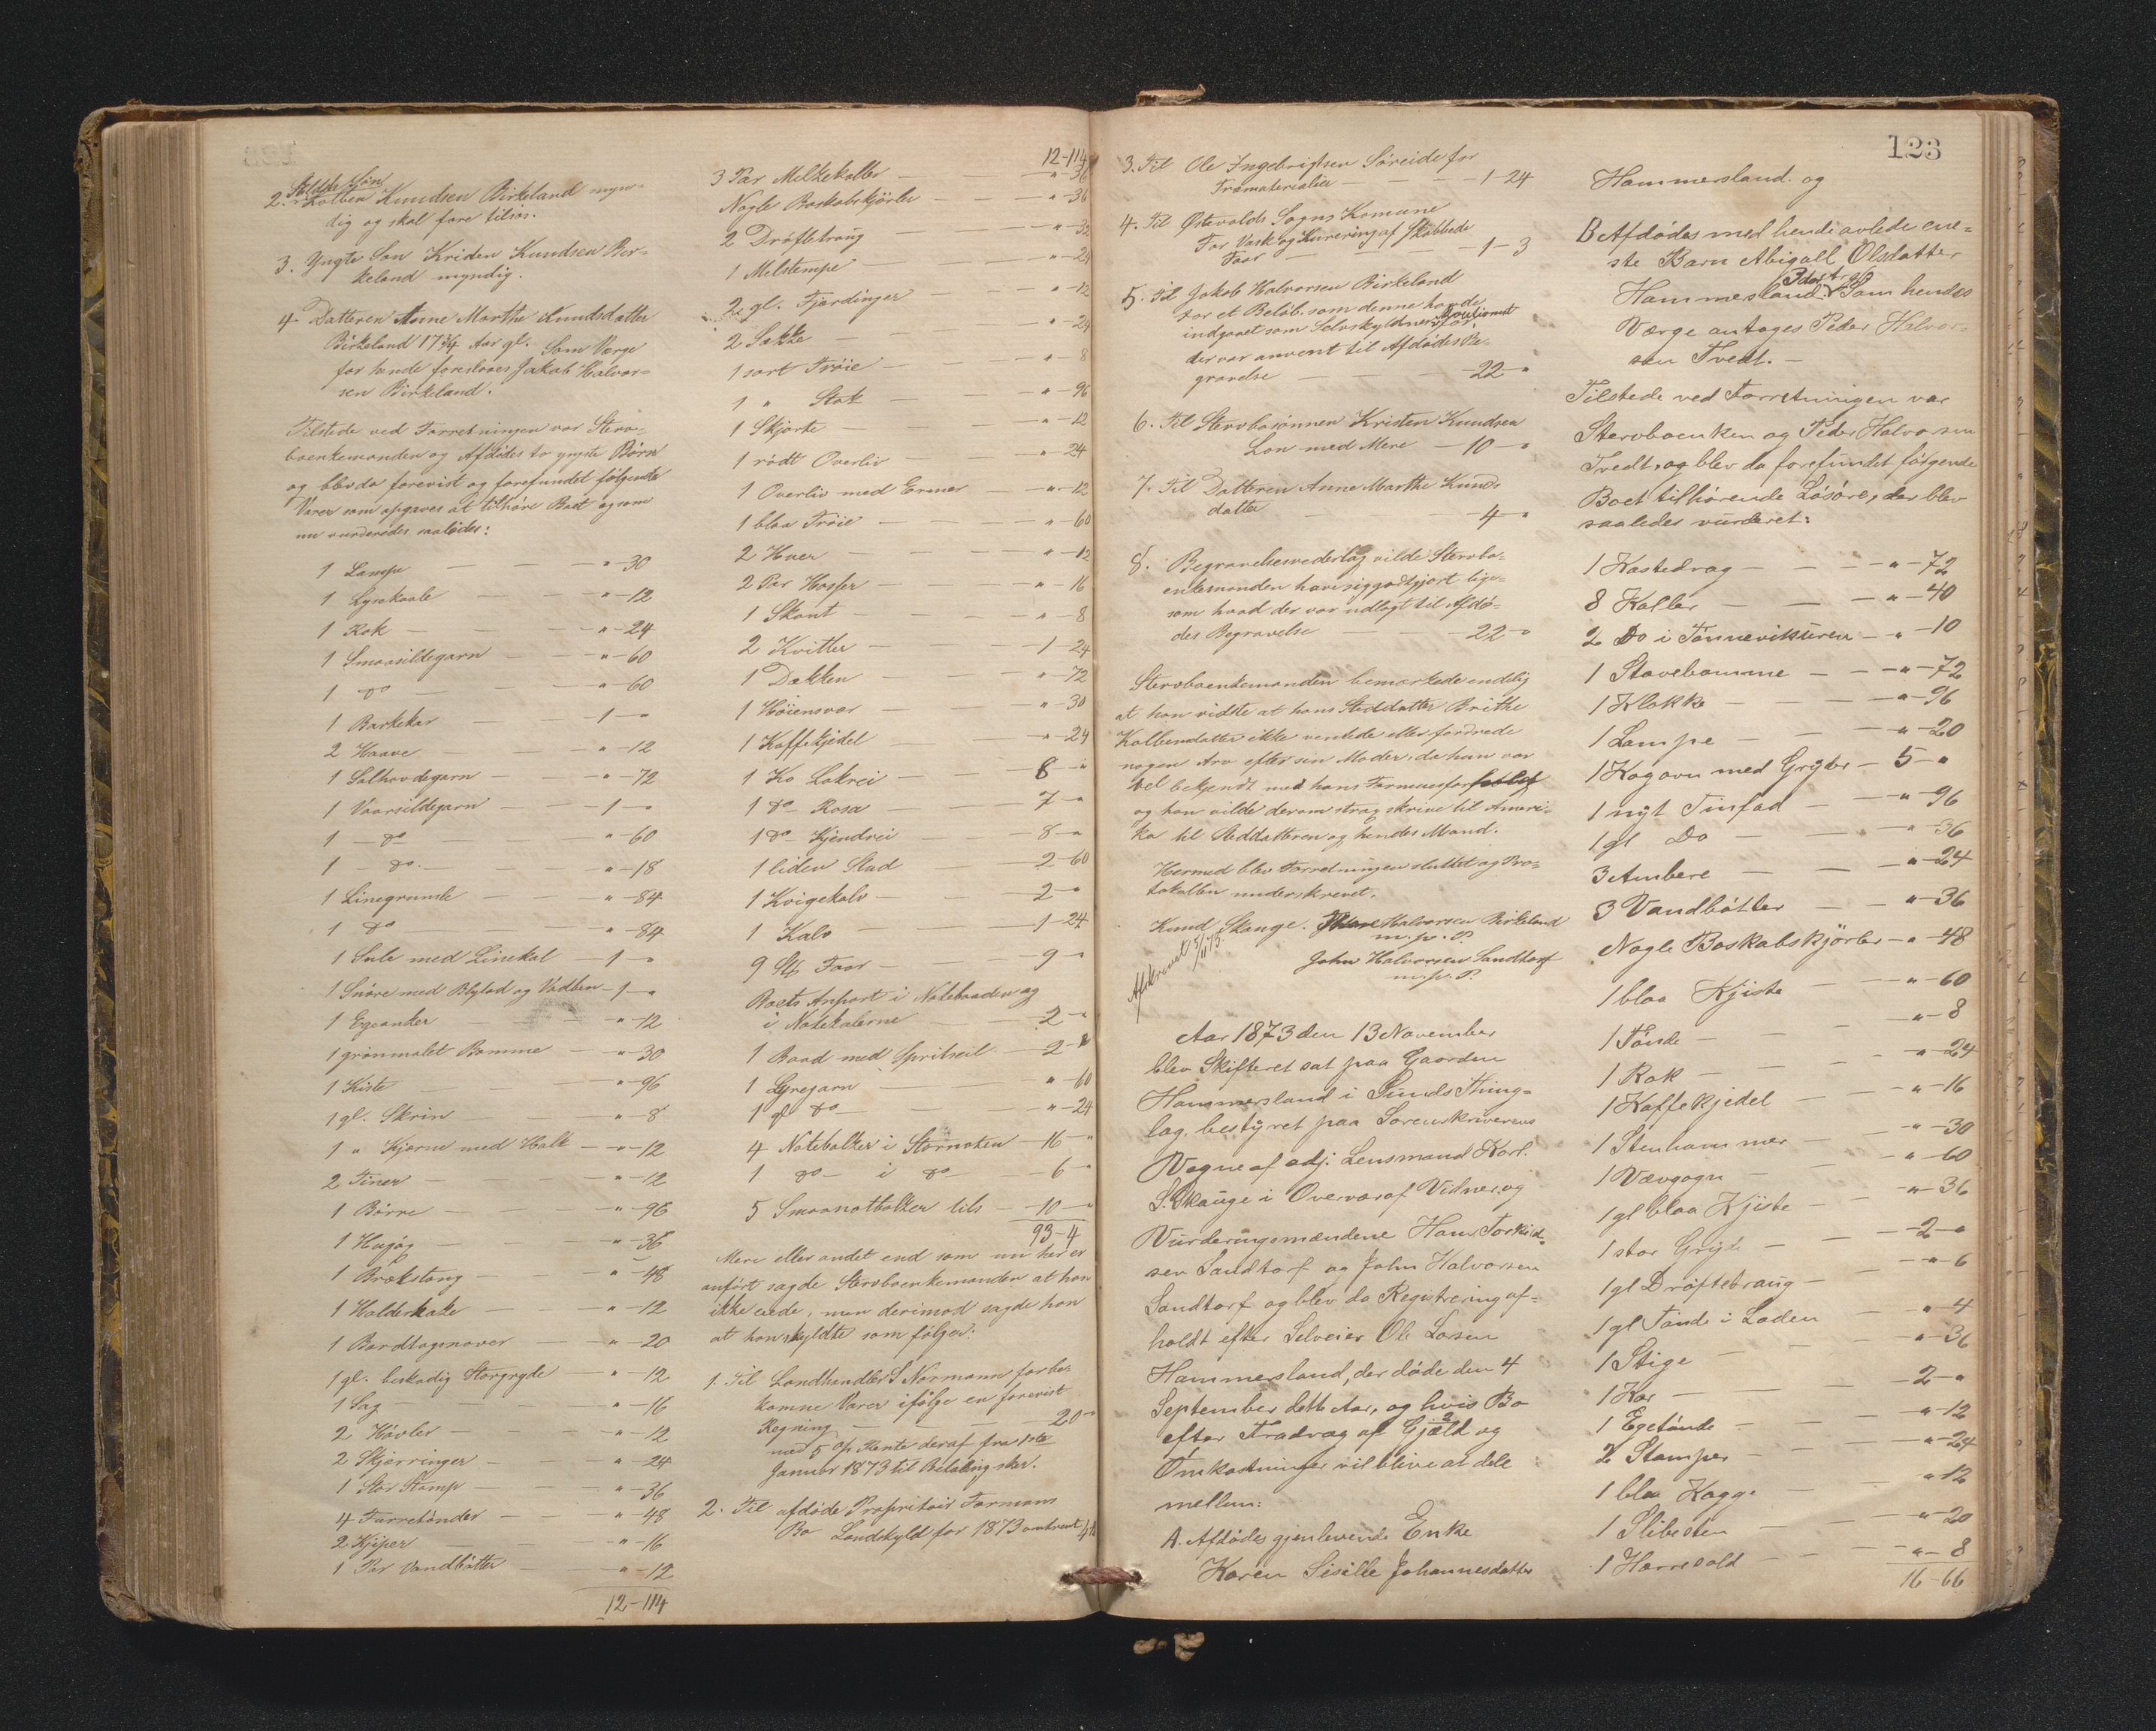 2. Ældste Søn Kolben Knudsen Birkeland myn-
dig og skal fare tilsøs.
3. Yngste Søn Kristen Knudsen Bir-
keland myndig.
4. Datteren Anne Marthe Knudsdatter
Birkeland 17 3/4 Aar gl. Som Værge
for hende foresloges Jakob Halvor-
sen Birkeland.
Tilstede ved Forretningen var Sterv-
boenkemanden og Afdødes to yngste Børn
og blev da forevist og forefundet følgende
Varer som opgaves at tilhøre Boet og som
nu vurderedes saaledes:
1 Lampe — " - 30
1 Lysekaale — " - 12
1 Rok — " - 24
1 Smaasildegarn — " - 60
1 do — " - 60
1 Barkekar — 1 - "
2 Haave — " - 12
1 Salhovdegarn — " - 72
1 Vaarsildegarn — 1 - "
1 - do — " - 60
1 - do - — " - 18
1 Linegrumle — " - 84
1 do — " - 84
1 Sule med Linekal — 1 - "
1 Snøre med Blylod og Vadben — 1 - "
1 Egeanker — " - 12
1 grønmalet Bomme — " - 30
1 Kiste — " - 96
1 gl. Skrin — " - 8
1 " Kjørne med Halk — " - 12
2 Tiner — " - 12
1 Børre — " - 96
1 Hagjøg — " - 36
1 Brækstang — " - 48
1 Holderhake — " - 12
1 Bordtagsnaver — " - 20
1 gl. beskadig Storgryde — " - 12
1 Sag — " - 16
2 Høvler — " - 12
2 Skjærringer — " - 24
1 Stor Stamp — " - 36
4 Furretønder — " - 48
2 Kjiper — " - 16
1 Par Vandbøtter — " - 12
12 - 114
12 - 114
3 Par Melkekoller — " - 36
Nogle Boskabskjørler — " - 36
2 Drøftetraug — " - 32
1 Melstempe — " - 24
2 gl. Fjordinger — " - 12
2 Sække — " - 24
1 sort Trøie — " - 8
1 " Stak — " - 96
1 Skjorte — " - 12
1 rødt Overliv — " - 24
1 Overliv med Ermer — " - 12
1 blaa Trøie — " - 60
2 Huer — " - 12
2 Par Hosser — " - 16
1 Skaut — " - 8
2 Kvitler — 1 - 24
1 Dækken — " - 72
1 Høiensvar — " - 30
1 Kaffekjedel — " - 24
1 Ko Lakrei — 8 - "
1 do Rosa — 7 - "
1 do Kjendrei — 8 - "
1 liden Stud — 2 - 60
1 Kvigekalv — 2 - "
1 Kalv — 1 - 24
9 Stk Faar — 9 - "
Boets Anpart i Notebaaden og
i Notekalerne — 2 - "
1 Baad med Spritseil — 2 - "
1 Lyregarn — " - 60
1 gl do — " - 24
4 Notebolker i Stornoten — 16 - "
1 do - i do — 6 - "
5 Smaanotbolker tils — 10 - "
93 - 4
Mere eller andet end som nu her er
anført sagde Stervboenkemanden at han
ikke eiede, men derimod sagde han
at han skyldte som følger:
1. Til Landhandler S Normann for be-
komne Varer ifølge en forevist
Regning — 20 - "
med 5 op Rente deraf fra 1ste
Januar 1873 til Betaling sker.
2. Til afdøde Propritair Formans
Bo Landskyld for 1873 omtrent 4
123
3. Til Ole Ingebrigtsen Søreide for
Træmaterialier — 1 - 24
4. Til Østevolds Sogns Komune
For Vask og Kurering af Skabbede
Faar — 1 - 3
5. Til Jakob Halvorsen Birkeland
for et Beløb, som denne havde
indgaaet som Selvskyldner Kautionist for,
der var anvent til Afdødes Be-
gravelse — 22 - "
6. Til Stervbosønnen Kristen Knudsen
Løn med Mere — 10 - "
7. Til Datteren Anne Marthe Knuds-
datter — 4 - "
8. Begravelsesvederlag vilde Stervbo-
enkemanden have sig godtgjort lige-
som hvad der var udlagt til Afdø-
des Begravelse — 22 - "
Stervboenkemanden bemærkede endelig
at han vidste at hans Steddatter Brithe
Kolbensdatter ikke ventede eller fordrede
nogen Arv efter sin Moder, da hun var
vel bekjendt med hans Formuesfor
og han vilde derom strax skrive til Ameri-
ka til Steddatteren og hendes Mand.
Hermed blev Forretningen sluttet og Pro-
tokollen underskrevet.
Knud Skauge. Halvorsen Birkeland
m. p. P.
John Halvorsen Sandtorf
m. p. P.
Afskrevet 5/11 73.
Aar 1873 den 13 November
blev Skifteret sat paa Gaarden
Hammersland i Sunds Thing-
lag, bestyret paa Sorenskriverens
Vegne af adj. Lensmand Karl.
S. Skauge i Overvær af Vidner og
Vurderingsmændene Hans Torkild-
sen Sandtorf og John Halvorsen
Sandtorf og blev da Registrering af-
holdt efter Selveier Ole Larsen
Hammersland, der døde den 4
September dette Aar, og hvis Bo
efter Fradrag af Gjæld og
Omkostninger vil blive at dele
mellem:
A. Afdødes gjenlevende Enke
Karen Sisille Johannesdatter
Hammersland. og
B Afdødes med hende avlede ene-
ste Barn Abigall Olsdatter
Hammersland, 3 dar t. gl. Som hendes
Værge antages Peder Halvor-
sen Tvedt. —
Tilstede ved Forretningen var
Stervboenken og Peder Halvorsen
Tvedt, og blev da forefundet følgende
Boet tilhørende Løsøre, der blev
saaledes vurderet:
1 Kastedrag — " - 72
8 Koller — " - 40
2 Do i Tønnevikturen — " - 10
1 Stavebomme — " - 72
1 Klokke — " - 96
1 Lampe — " - 20
1 Kogovn med Gryter — 5 - "
1 nyt Tinfad — " - 96
1 gl Do — " - 36
3 Ambere — " - 24
3 Vandbøtter — " - 36
Nogle Boskabskjørler — " - 48
1 blaa Kjiste — " - 60
1 Tønde — " - 8
1 Rok — " - 24
1 Kaffekjedel — " - 16
1 Stenhammer — " - 30
1 Vævgogn — " - 60
1 gl blaa Kjiste — " - 36
1 stor Gryde — 2 - "
1 gl Drøftetraug — " - 6
1 gl Tønde i Laden — " - 4
1 Stige — " - 36
1 Kar — 2 - "
1 Egetønde — " - 12
2 Stamper — " - 24
1 blaa Kagge — " - 12
1 Slibesten — " - 20
1 Harresold — " - 8
16 - 66